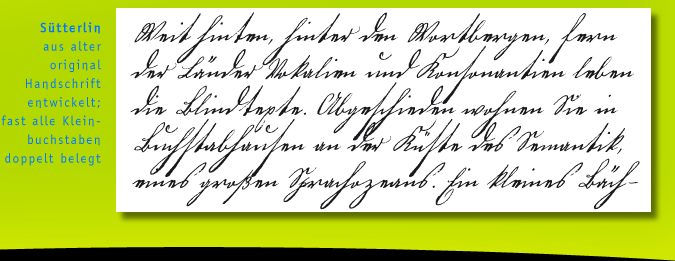 Sütterlin
aus alter
original
Handschrift
entwickelt;
fast alle Klein-
buchstaben
doppelt belegt
Weit hinten, hinter den Wortbergen, fern
der Länder Vokalien und Konsonantien leben
die Blindtexte. Abgeschieden wohnen Sie in
Buchstabhausen an der Küste des Semantik,
eines großen Sprachozeans. Ein kleines Bäch-